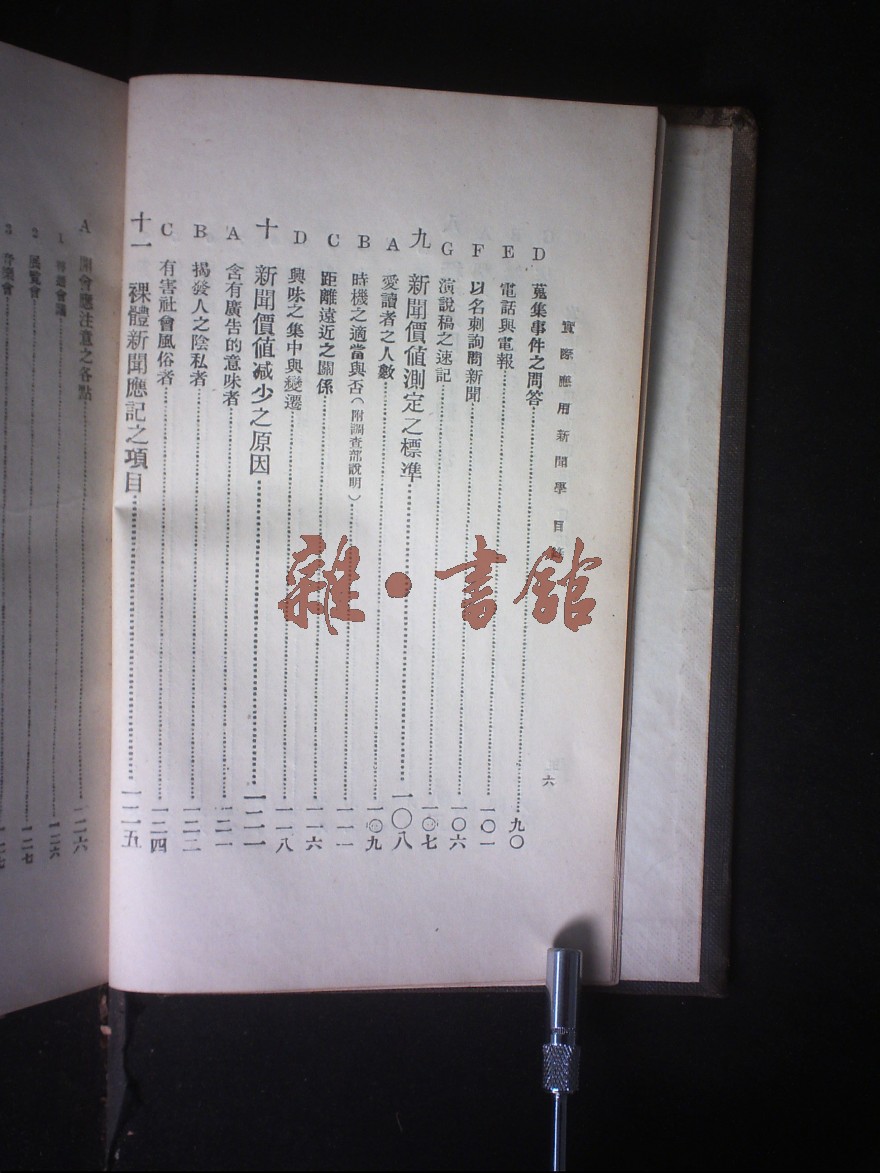 實際應用新聞學 目 六
D 蒐集事件之問答 九〇
E 電話與電報 一〇一
F 以名刺詢問新聞 一〇六
G 演說稿之速記 一〇七
九 新聞價值測定之標準 一〇八
A 愛讀者之人數 一〇九
B 時機之適當與否(附調查部說明) 一一一
C 距離遠近之關係 一一六
D 興味之集中與變遷 一一八
十 新聞價值減少之原因 一二一
A 含有廣告的意味者 一二一
B 揭發人之陰私者 一二二
C 有害社會風俗者 一二四
十一 裸體新聞應記之項目 一二五
A 開會應注意之各點 一二六
1 會議 一二六
2 展覽會 一二七
3 音樂會
雜·書館